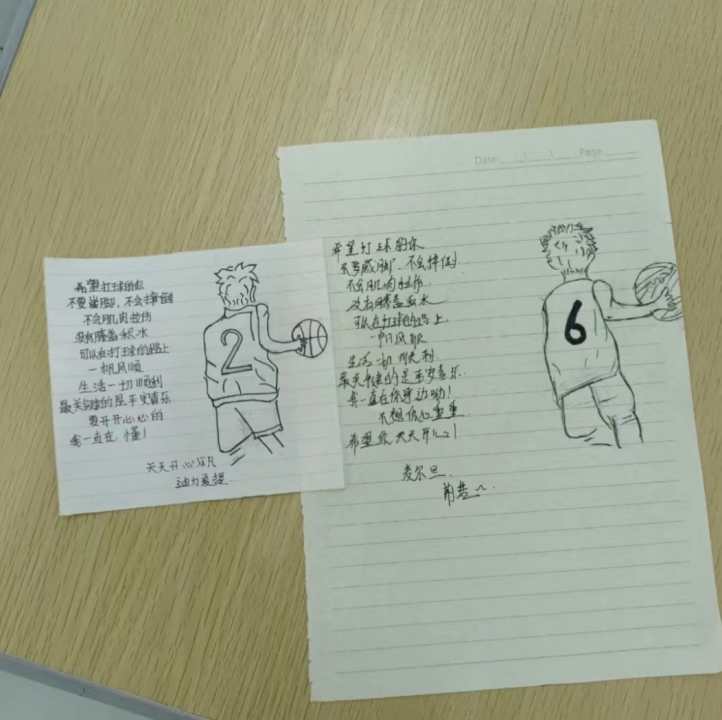 希望打球的你
不要崴脚，不会摔倒
不会肌肉拉伤
没有膝盖积水
可以在打球的路上
一帆风顺
生活一切顺利
最关键的是平安喜乐
要开开心心的
会一直在，懂！
天天开心
2
Date
Page
希望打球的你
不要崴脚，不会摔倒
不会肌肉拉伤
没有膝盖积水
可以在打球的路上
一帆风顺
生活一切顺利
最关键的是平安喜乐
会一直在你身边呦！
不想你心事重重
希望你天天开心！
麦尔旦
6